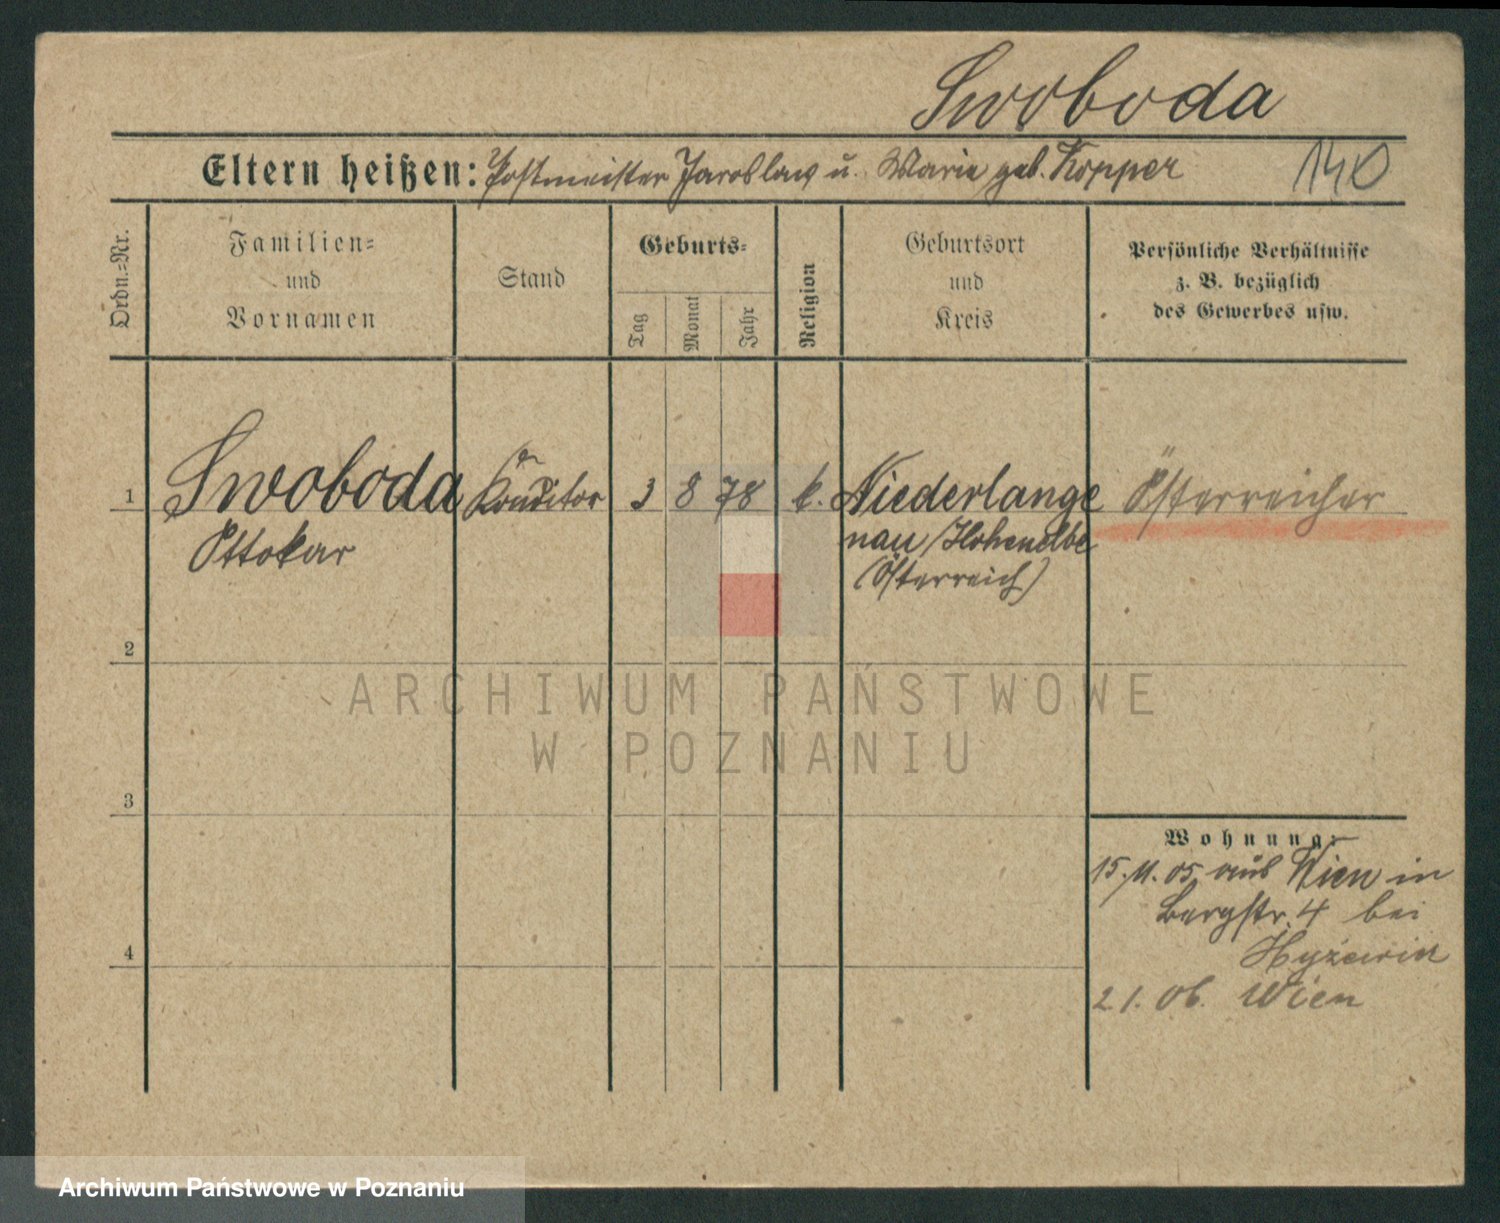 Swoboda
Eltern heißen: Postmeister Jaroslaw u. Marie geb. Kopper 140
Ordn.-Nr.
Familien-
und
Vornamen
Stand
Geburts-
Tag
Monat
Jahr
Religion
Geburtsort
und
Kreis
Persönliche Verhältnisse
z. B. bezüglich
des Gewerbes usw.
1 Swoboda Konditor 3 8 78 k. Niederlange Österreicher
Ottokar nau/Hohenelbe
(Österreich)
2
ARCHIWUM PAŃSTWOWE
W POZNANIU
3
Wohnung:
15.11.05 aus Wien in
Bergstr. 4 bei
4
21.06. Wien
Archiwum Państwowe w Poznaniu